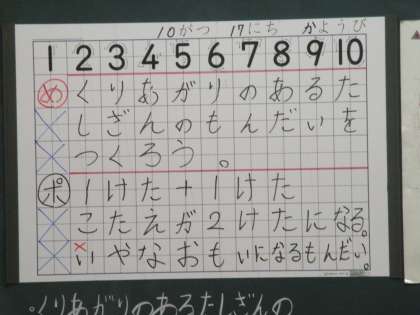 10がつ 17にち かようび
1 2 3 4 5 6 7 8 9 10
め くりあがりのあるた
しざんのもんだいを
つくろう。
ポ 1けた+1けた
こたえが2けたになる。
いやなおもいになるもんだい。
くりあがりのあるたしざんの